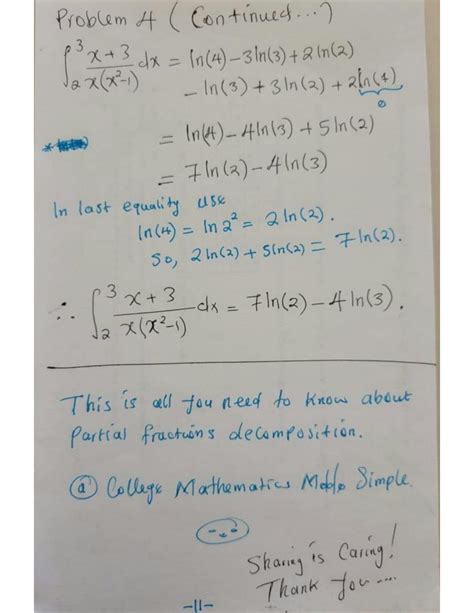 Problem 4 (Continued...)
∫₂³ x+3 / x(x²-1) dx = ln(4) - 3ln(3) + 2ln(2)
- ln(3) + 3ln(2) + 2ln(1)
0
= ln(4) - 4ln(3) + 5ln(2)
= 7ln(2) - 4ln(3)
In last equality use
ln(4) = ln2² = 2ln(2).
So, 2ln(2) + 5ln(2) = 7ln(2).
∴ ∫₂³ x+3 / x(x²-1) dx = 7ln(2) - 4ln(3).
This is all you need to know about
Partial fractions decomposition.
@ College Mathematics Made Simple.
Sharing is Caring!
Thank You....
-11-